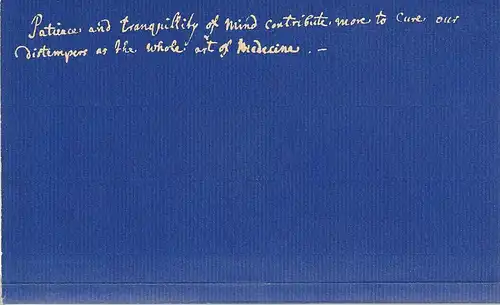 Patience and tranquillity of mind contribute more to cure our
distempers as the whole art of Medecine. —